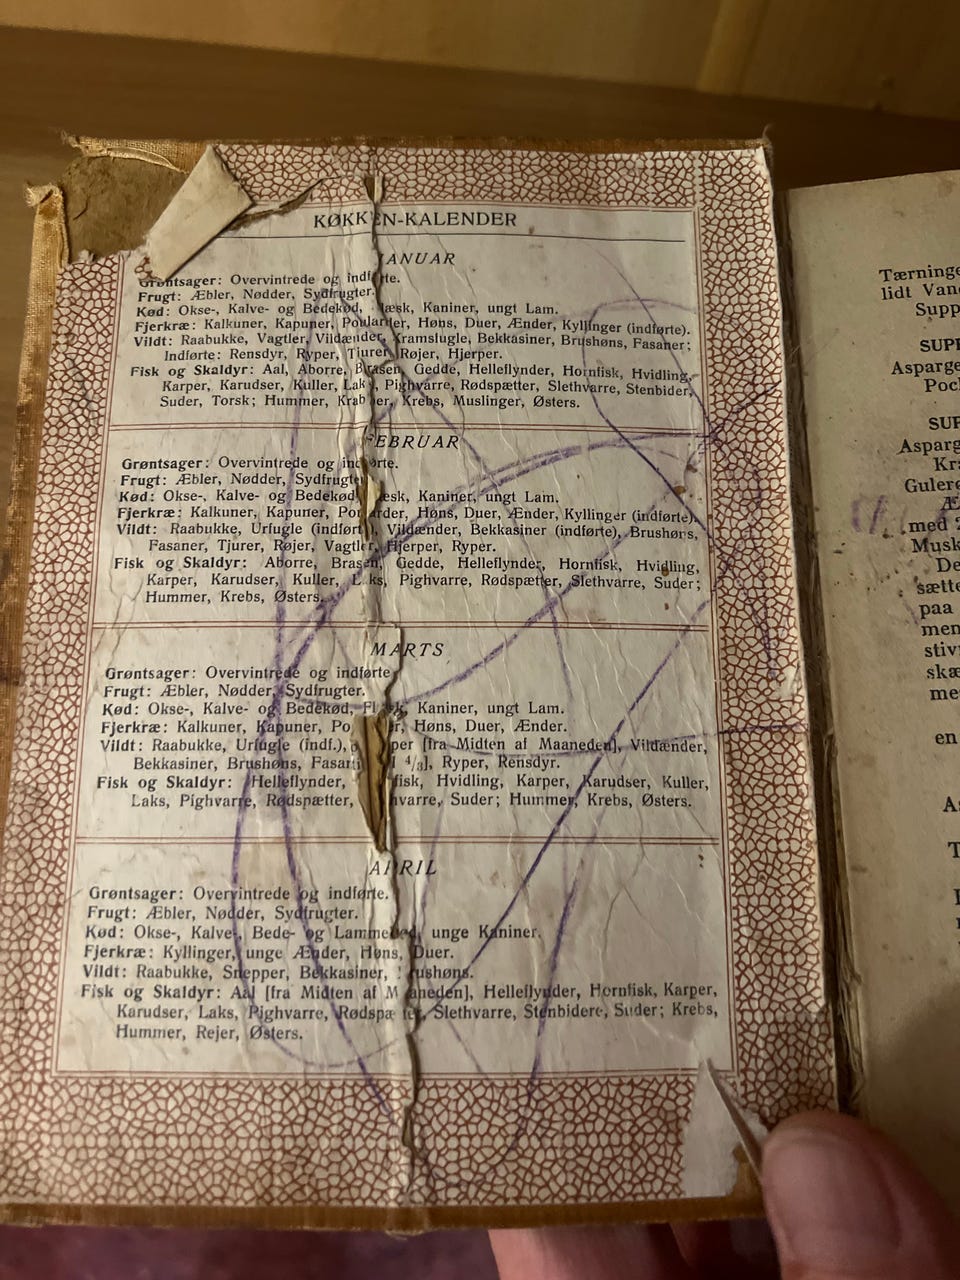 KØKKEN-KALENDER
JANUAR
Grøntsager: Overvintrede og indførte.
Frugt: Æbler, Nødder, Sydfrugter.
Kød: Okse-, Kalve- og Bedekød, Flæsk, Kaniner, ungt Lam.
Fjerkræ: Kalkuner, Kapuner, Poularder, Høns, Duer, Ænder, Kyllinger (indførte).
Vildt: Raabukke, Vagtler, Vildænder, Kramsfugle, Bekkasiner, Brushøns, Fasaner;
Indførte: Rensdyr, Ryper, Tjurer, Røjer, Hjerper.
Fisk og Skaldyr: Aal, Aborre, Brasen, Gedde, Helleflynder, Hornfisk, Hvidling,
Karper, Karudser, Kuller, Laks, Pighvarre, Rødspætter, Slethvarre, Stenbider,
Suder, Torsk; Hummer, Krabber, Krebs, Muslinger, Østers.
FEBRUAR
Grøntsager: Overvintrede og indførte.
Frugt: Æbler, Nødder, Sydfrugter
Kød: Okse-, Kalve- og Bedekød, Flæsk, Kaniner, ungt Lam.
Fjerkræ: Kalkuner, Kapuner, Poularder, Høns, Duer, Ænder, Kyllinger (indførte).
Vildt: Raabukke, Urfugle (indførte), Vildænder, Bekkasiner (indførte), Brushøns,
Fasaner, Tjurer, Røjer, Vagtler, Hjerper, Ryper.
Fisk og Skaldyr: Aborre, Brasen, Gedde, Helleflynder, Hornfisk, Hvidling,
Karper, Karudser, Kuller, Laks, Pighvarre, Rødspætter, Slethvarre, Suder;
Hummer, Krebs, Østers.
MARTS
Grøntsager: Overvintrede og indførte
Frugt: Æbler, Nødder, Sydfrugter.
Kød: Okse-, Kalve- og Bedekød, Flæsk, Kaniner, ungt Lam.
Fjerkræ: Kalkuner, Kapuner, Høns, Duer, Ænder.
Vildt: Raabukke, Urfugle (indf.), [fra Midten af Maaneden], Vildænder,
Bekkasiner, Brushøns, 4/3], Ryper, Rensdyr.
Fisk og Skaldyr: Helleflynder, Hvidling, Karper, Karudser, Kuller,
Laks, Pighvarre, Rødspætter, Suder; Hummer, Krebs, Østers.
APRIL
Grøntsager: Overvintrede og indførte.
Frugt: Æbler, Nødder, Sydfrugter.
Kød: Okse-, Kalve-, Bede- og Lammekød, unge Kaniner.
Fjerkræ: Kyllinger, unge Ænder, Høns, Duer.
Vildt: Raabukke, Snepper, Bekkasiner, Brushøns.
Fisk og Skaldyr: Aal [fra Midten af Maaneden], Helleflynder, Hornfisk, Karper,
Karudser, Laks, Pighvarre, Rødspætter, Slethvarre, Stenbidere, Suder; Krebs,
Hummer, Rejer, Østers.
Tærninge
lidt Van
Supp
SUP
Asparge
Poc
SUP
Asparg
Kra
Gulerø
Æ
med
Musk
De
sætte
paa
men
stiv
skæ
me
en